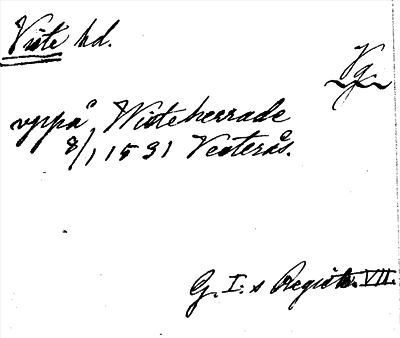 Viste hd.
Vg
uppå Wisteherrade
8/1 1531 Vesterås.
G. I:s Registr. VII.